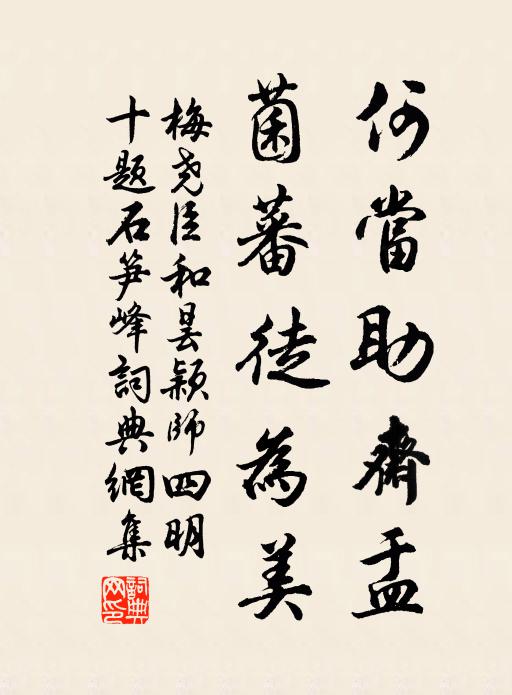 何當助齋盂
菌蕃徒為美
梅尧臣和曇颖師四明
十题石笋峰詞典網集